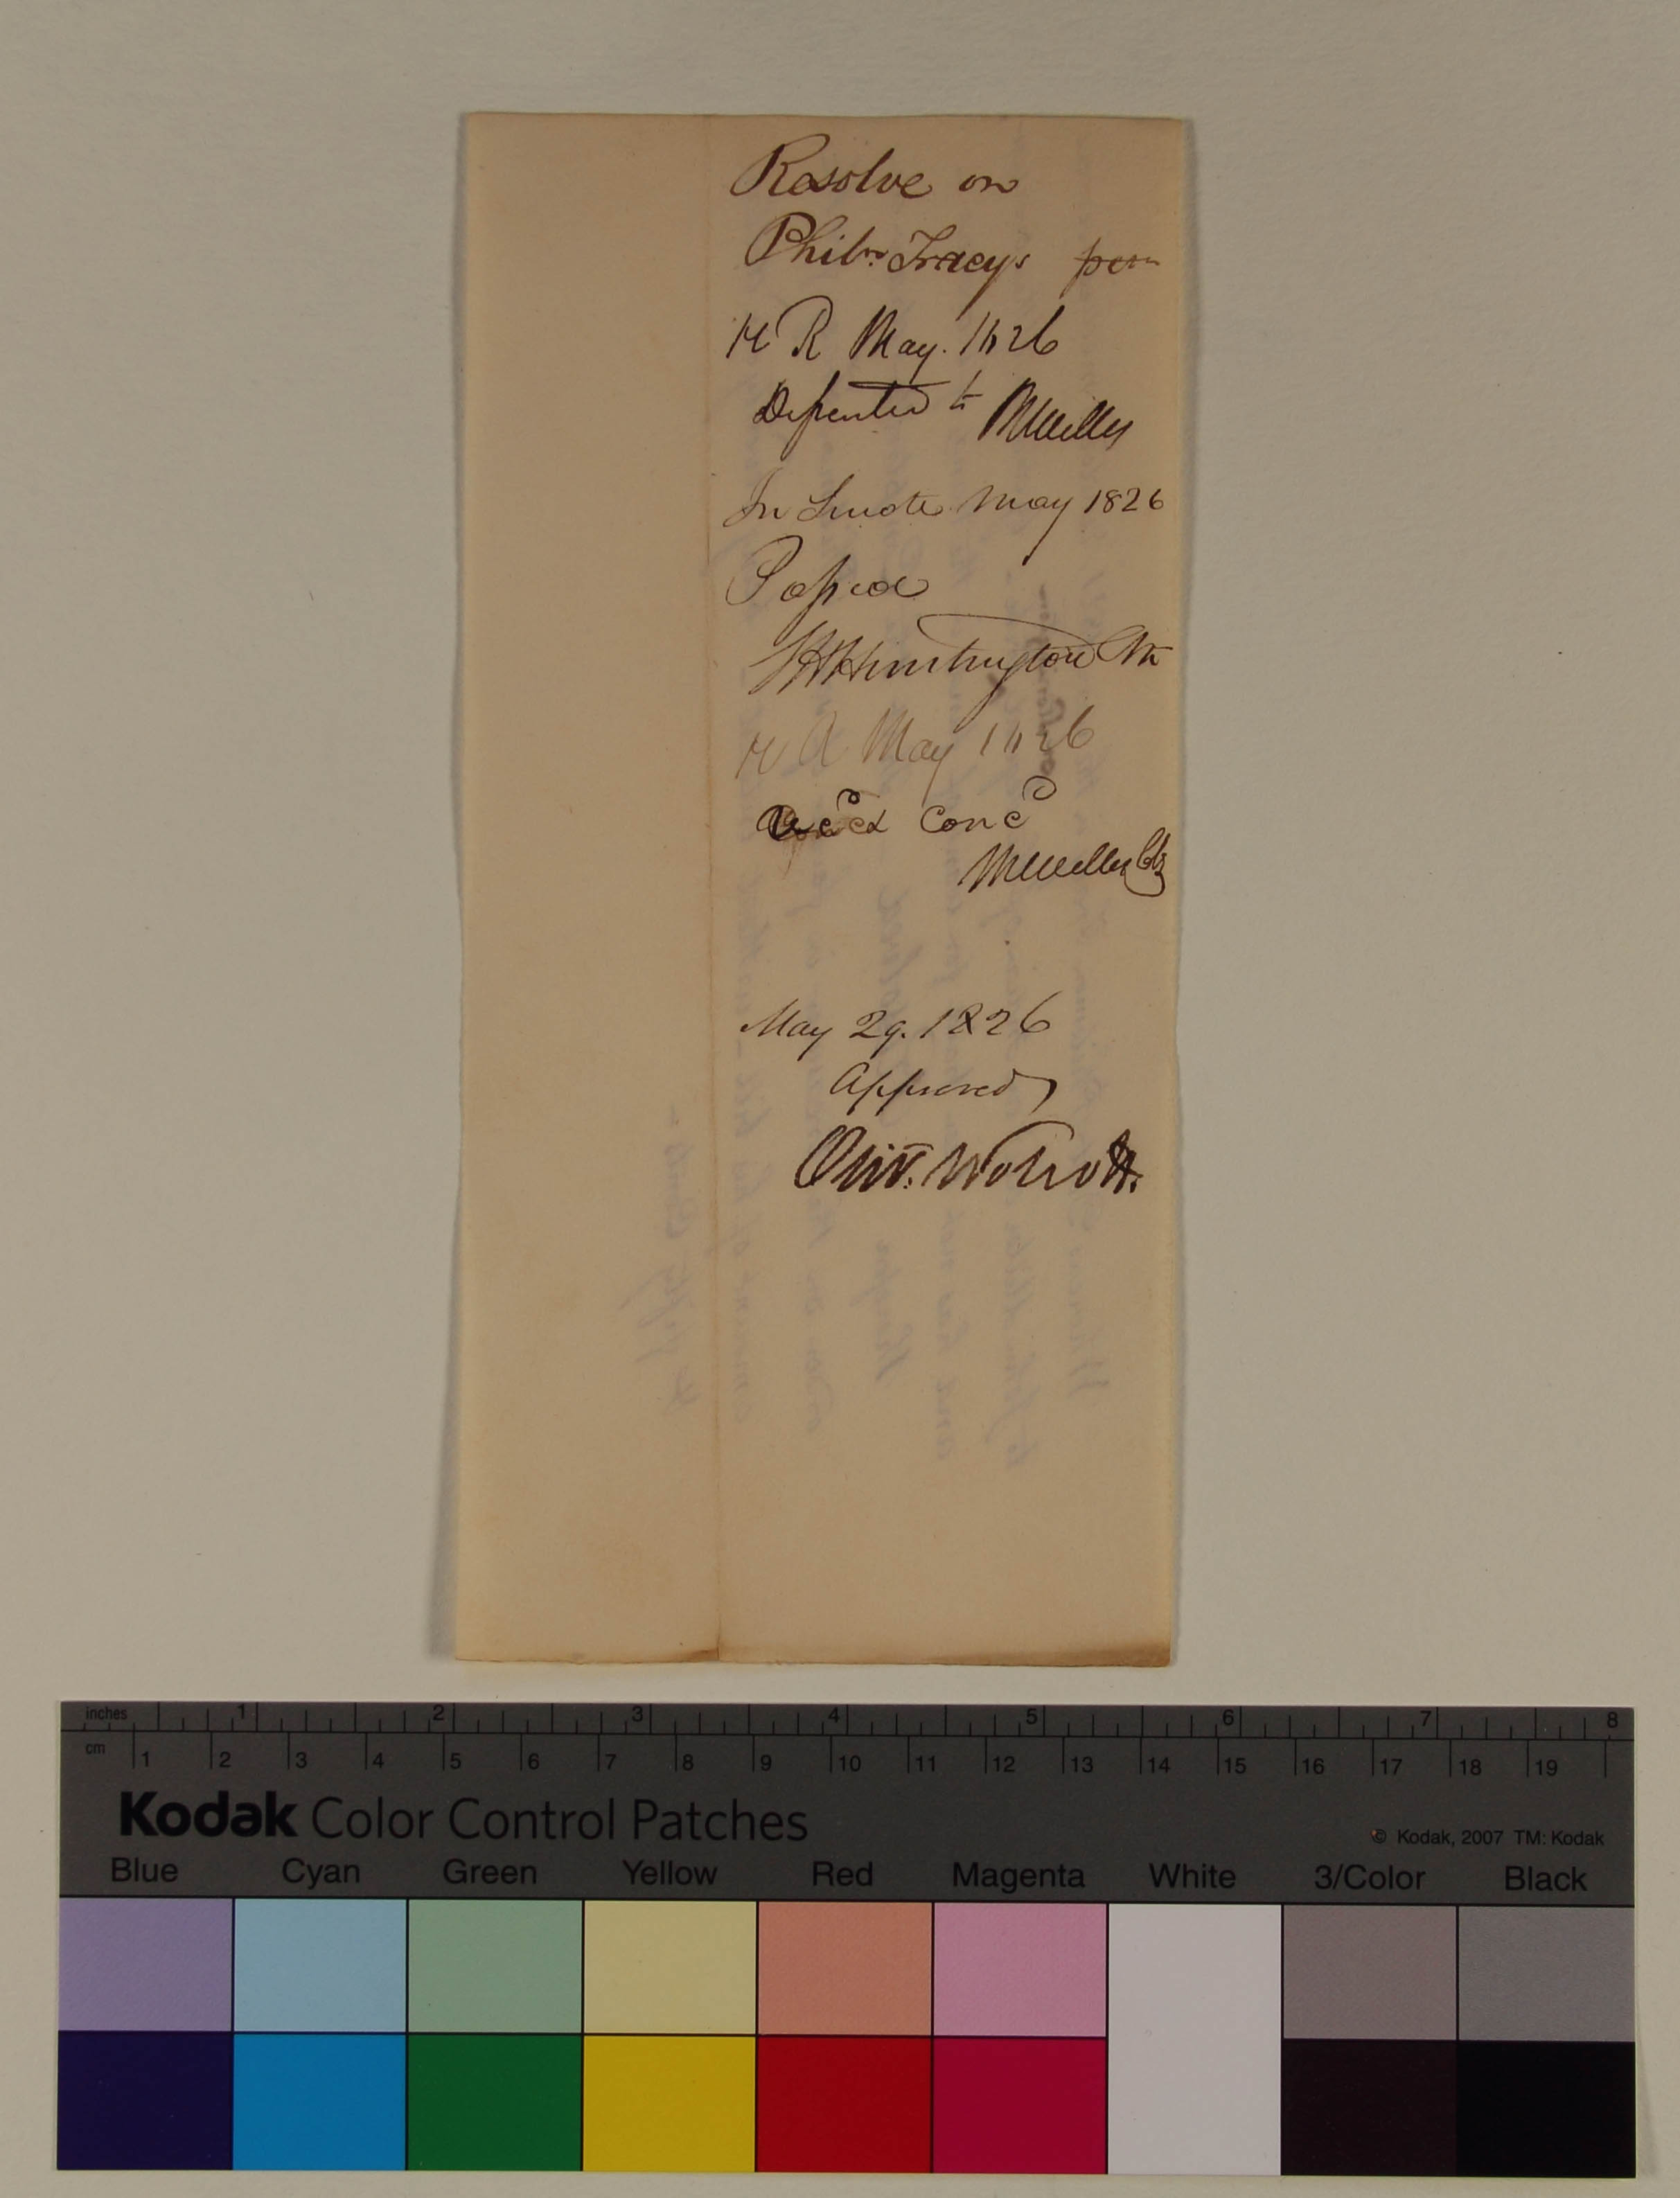 Resolve on
Philn. Tracys petn
H R May. 1826
Dissented to MWelles
In Senate May 1826
Passed
Huntington Clk
H R May 1826
Recd Concd
MWelles Clk
May 29. 1826
Approved
Oliv. Wolcott.
inches 1 2 3 4 5 6 7 8
cm 1 2 3 4 5 6 7 8 9 10 11 12 13 14 15 16 17 18 19
Kodak Color Control Patches
© Kodak, 2007 TM: Kodak
Blue Cyan Green Yellow Red Magenta White 3/Color Black